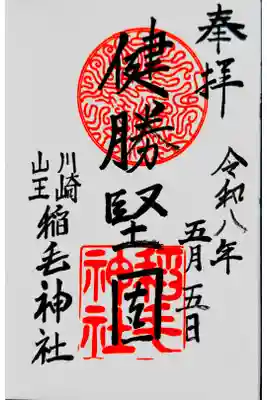 奉拝
令和八年
五月五日
健勝堅固
川崎
山王
稲毛神社
稲毛神社